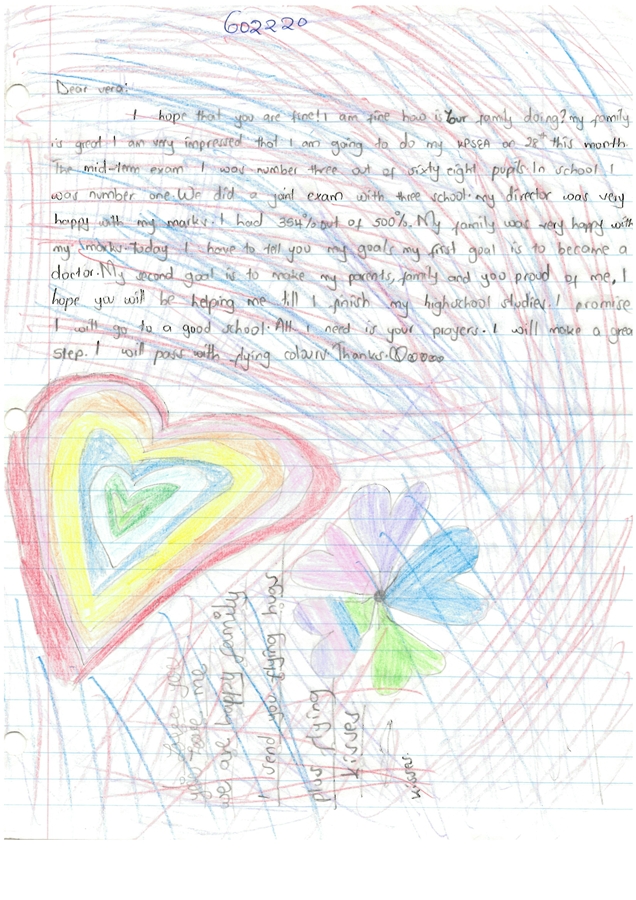 602220
Dear vera:
I hope that you are fine! I am fine how is Your family doing? my family
is great I am very impressed that I am going to do my KPSEA on 28th this month.
The mid-term exam I was number three out of sixty eight pupils. In school I
was number one. We did a joint exam with three school. my director was very
happy with my marks. I had 354% out of 500%. My family was very happy with
my marks. Today I have to tell you my goals my first goal is to became a
doctor. My second goal is to make my parents, family and you proud of me, I
hope you will be helping me till I finish my highschool studies. I promise
I will go to a good school. All I need is your prayers. I will make a grea
step. I will pass with flying colours. Thanks.
you
me
we are happy family
I send you flying hugs
plus flying
kisses
kisses.